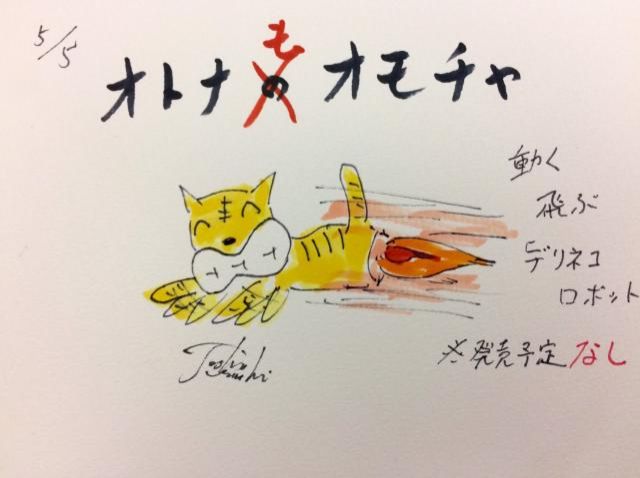 5/5
も
オトナの オモチャ
動く
飛ぶ
デリネコ
ロボット
※発売予定なし